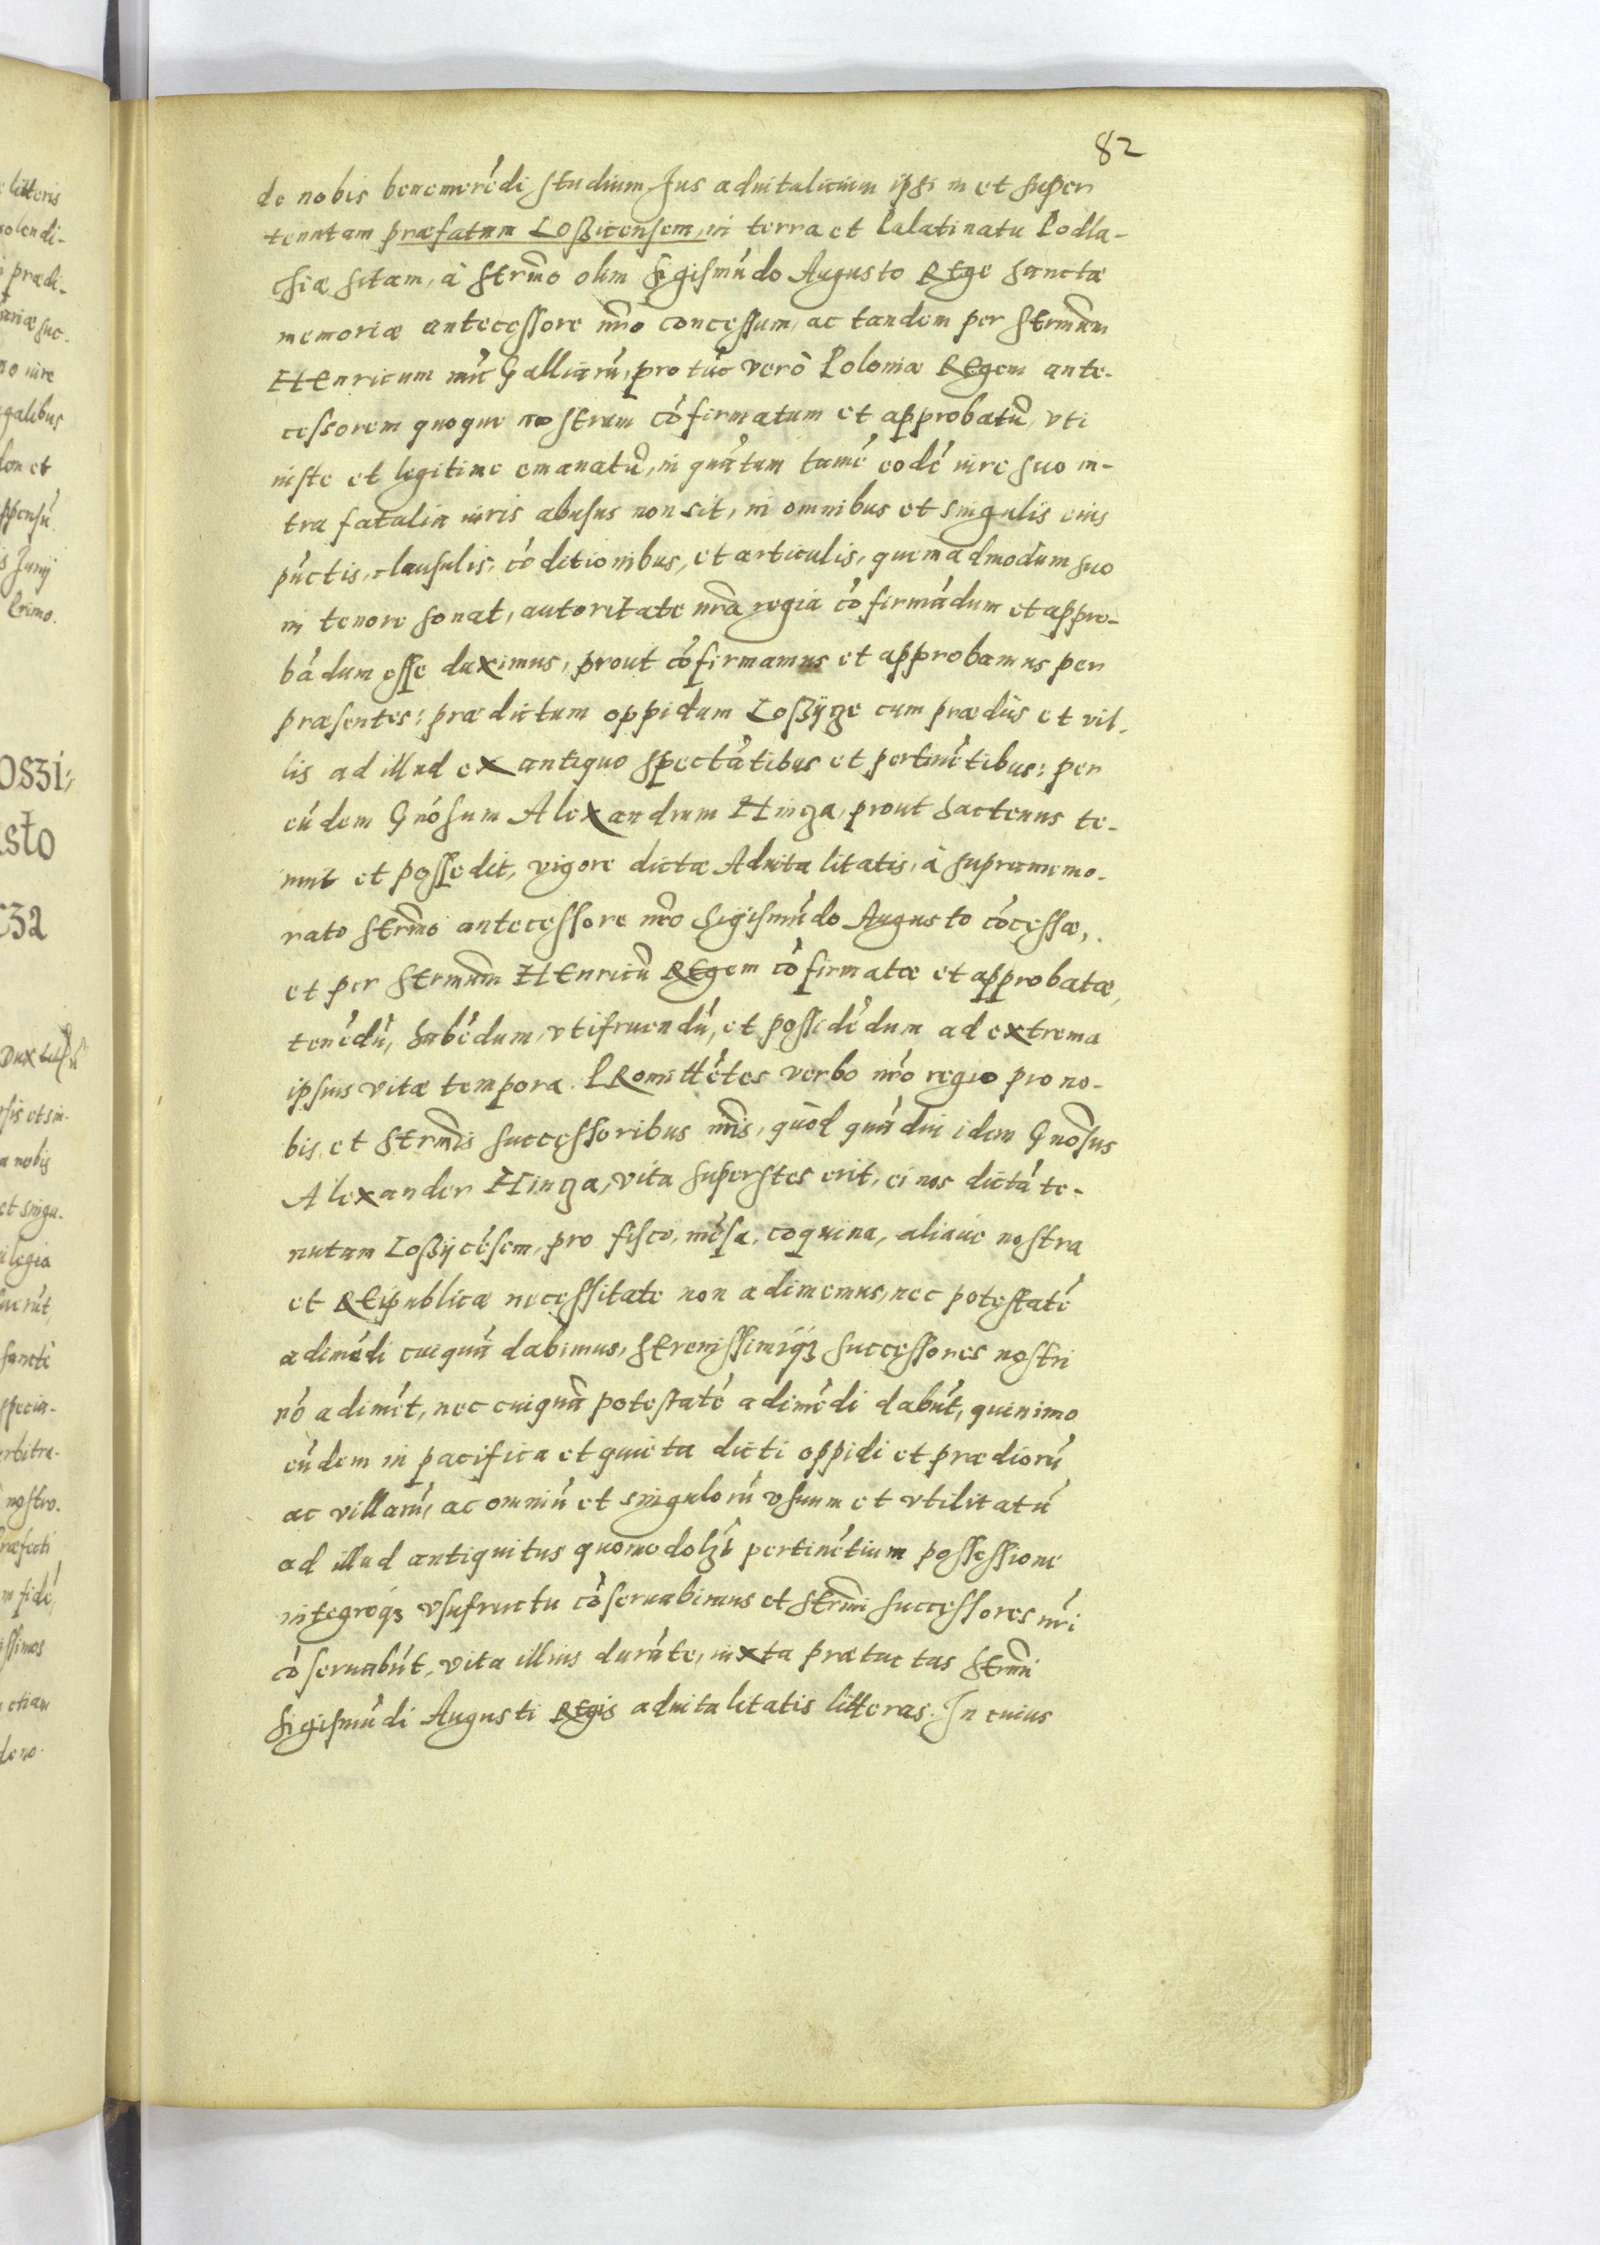 82
de nobis benemerēdi studium Jus aduitalicium ipsi in et super
tenutam præfatam Loßicensem, in terra et Palatinatu Podla-
chiæ sitam, à Serm̄o olim Sigismūdo Augusto REge sanctæ
memoriæ antecessore nr̄o concessum, ac tandem per Sermum̄
HEnricum nūc Galliarū, pro tūc verò Poloniæ REgem ante-
cessorem quoque nostrum cōfirmatum et approbatū, vti
iuste et legitime emanatū, in quātum tamē eodē iure suo in-
tra fatalia iuris abusus non sit, in omnibus et singulis eius
pūctis, clausulis, cōditionibus, et articulis, quemadmodum suo
in tenore sonat, autoritate nrā regia cōfirmādum et appro-
bādum esse duximus, prout cōfirmamus et approbamus per
præsentes: prædictum oppidum Loßÿze cum prædiis et vil-
lis ad illud ex antiquo spectātibus et pertinētibus: per
eūdem Gnōsum Alexandrum Hinza, prout hactenus te-
nuit et possedit, vigore dictæ Aduitalitatis, à supramemo-
rato Serm̄o antecessore nr̄o Sigismūdo Augusto cōcessæ,
et per Sermum̄ HEnricū REgem cōfirmatæ et approbatæ,
tenēdū, habēdum, vtifruendū, et possidēdum ad extrema
ipsius vitæ tempora. PRomittētes verbo nr̄o regio pro no-
bis et Serm̄is successoribus nr̄is, quòd quādiu idem Gnōsus
Alexander Hinza, vita superstes erit, ei nos dictā te-
nutam Loßÿcēsem, pro fisco, mēsa, coquina, aliaue nostra
et REipublicæ necessitate non adimemus, nec potestatē
adimēdi cuiquā dabimus, SErenissimiq3 successores nostri
nō adimēt, nec cuiquā potestatē adimēdi dabūt, quinimo
eūdem in pacifica et quieta dicti oppidi et prædiorū
ac villarū, ac omniū et singulorū vsuum et vtilitatū
ad illud antiquitus quomodolȝt pertinētium possessione
integroq3 vsufructu cōseruabimus et Serm̄i successores nr̄i
cōseruabūt, vita illius durāte, iuxta prætactas Serm̄i
Sigismūdi Augusti REgis aduitalitatis litteras. In cuius